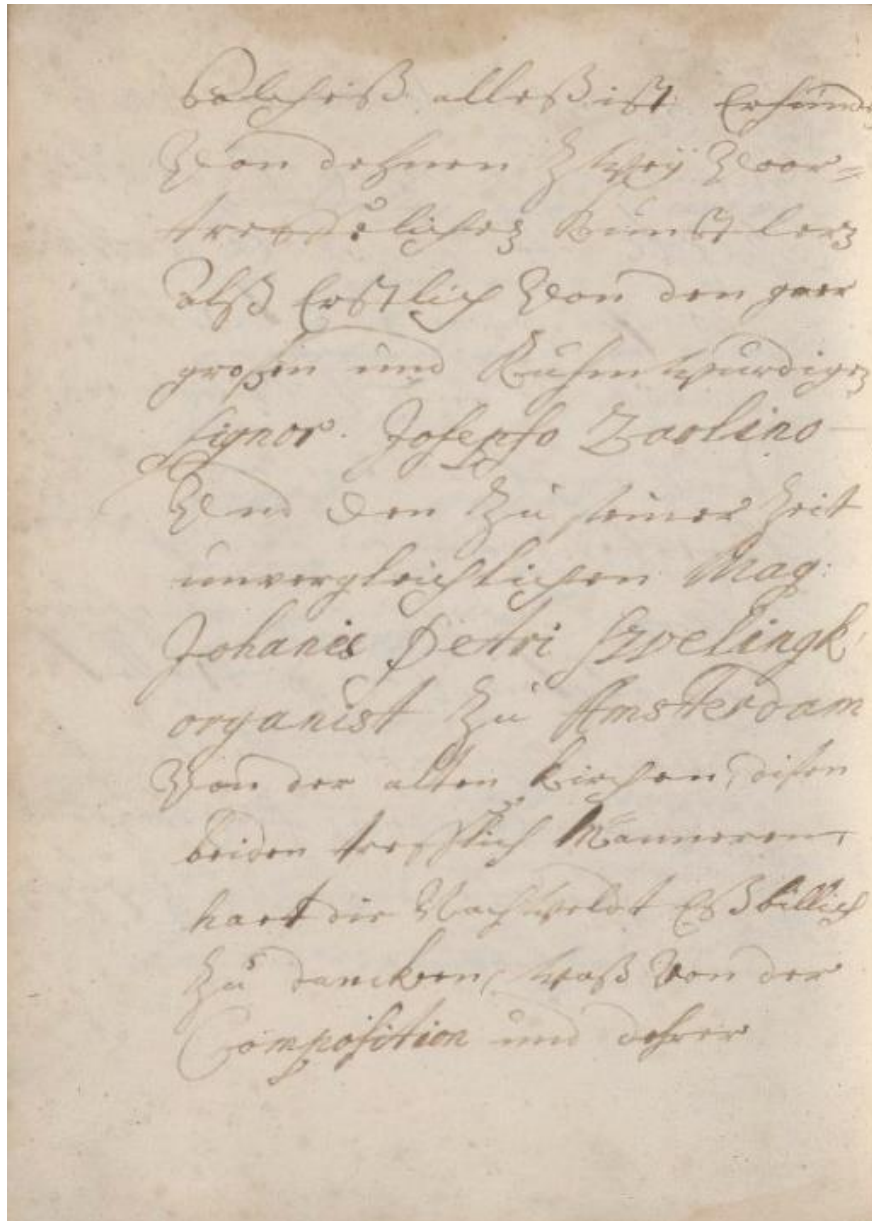 Welcheß alleß ist Erfunde
Von dehnen Zweÿ Voor=
treffelichen Künstlern
Alß Erstlich Von den gaer
großen und Ruhmwürdigen
Signor. Josepho Zarlino
Vnd den Zu seiner Zeit
unvergleichlichen Mag:
Johanis Petri Swelingk,
organist Zu Amsterdam
Von der alten Kirchen, disen
beiden trefflich Manneren,
haet die Nachweldt Eß billich
Zu dancken, waß Von der
Composition und dehrer